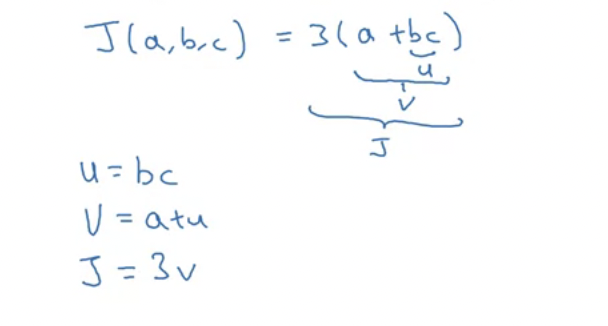 J(a,b,c) = 3(a+bc)
u
v
J
u = bc
V = a+u
J = 3v